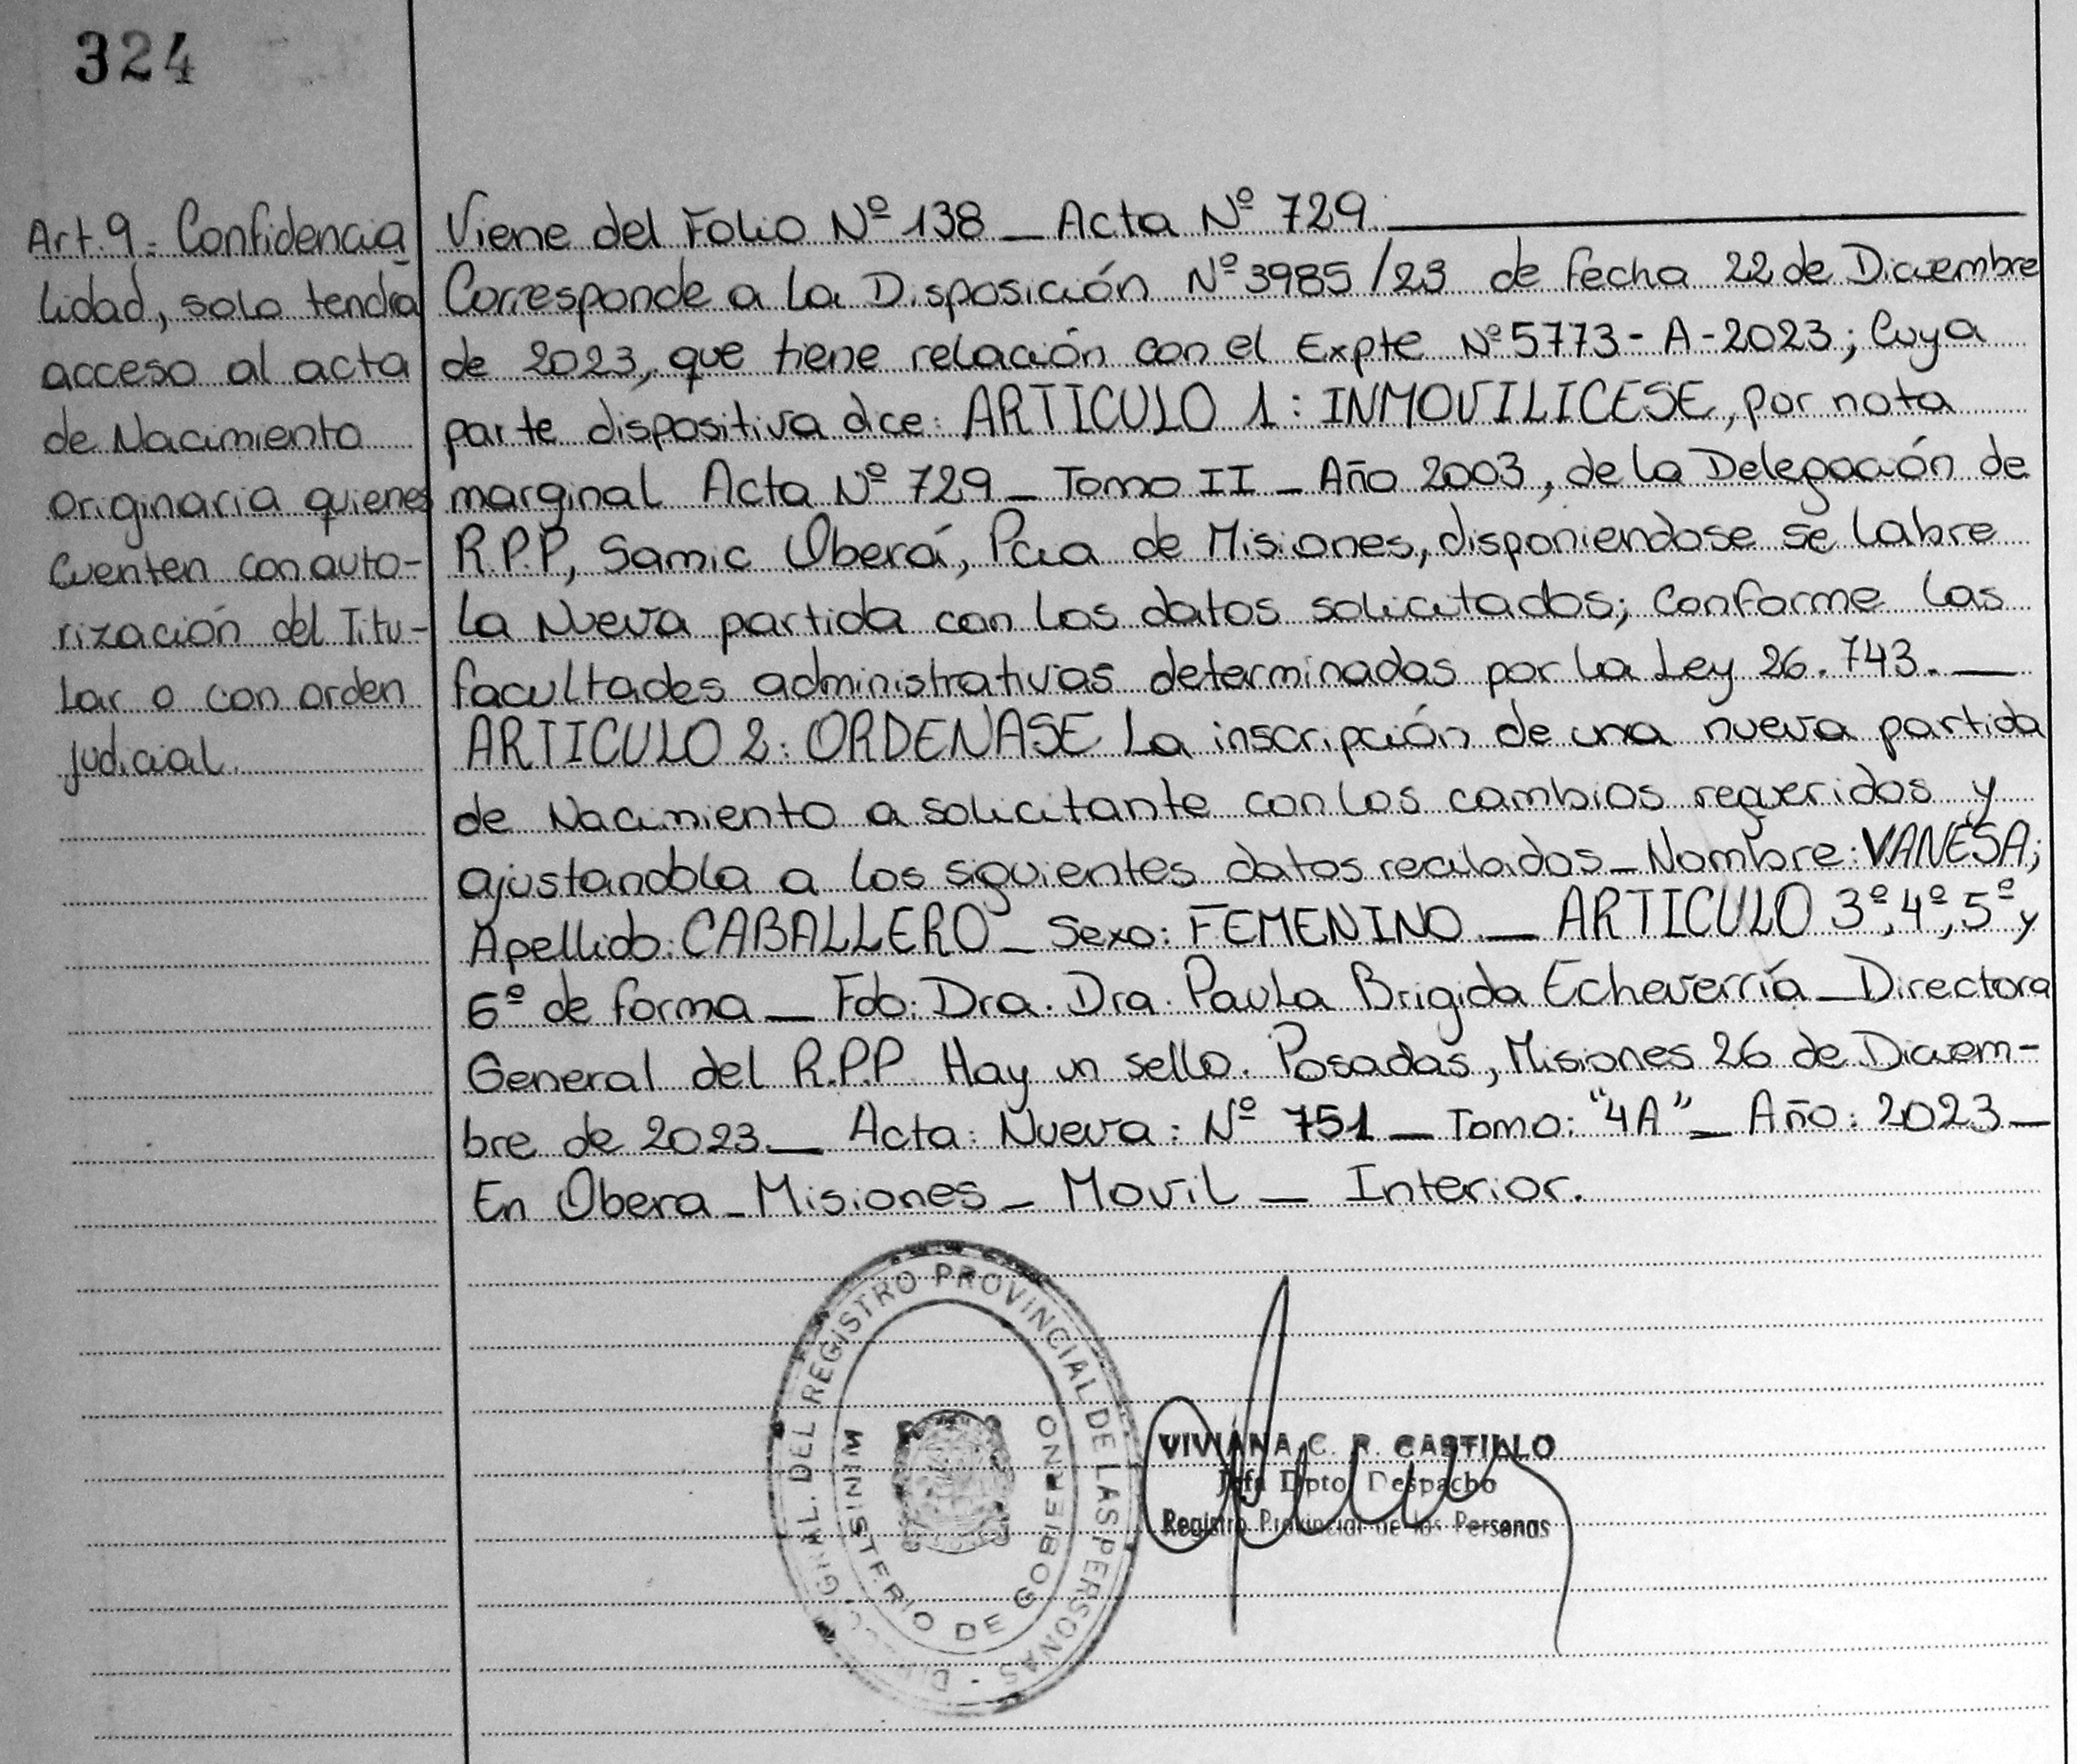 324
Art.9. Confidencia
lidad, solo tendra
acceso al acta
de Nacimiento
originaria quienes
cuenten con auto-
rización del Titu-
lar o con orden
judicial.
Viene del Folio Nº 138 _ Acta Nº 729.
Corresponde a la Disposición Nº 3985/23 de fecha 22 de Diciembre
de 2023, que tiene relación con el Expte Nº 5773-A-2023; Cuya
parte dispositiva dice: ARTICULO 1: INMOVILICESE, por nota
marginal Acta Nº 729 _ Tomo II _ Año 2003, de la Delegación de
R.P.P, Samic Oberá, Pcia de Misiones, disponiendose se labre
la Nueva partida con los datos solicitados; Conforme las
facultades administrativas determinadas por la Ley 26.743. _
ARTICULO 2: ORDENASE La inscripción de una nueva partida
de Nacimiento a solicitante con los cambios requeridos y
ajustandola a los siguientes datos recibidos _ Nombre: VANESA;
Apellido: CABALLERO _ Sexo: FEMENINO. _ ARTICULO 3º, 4º, 5º y
6º de forma _ Fdo: Dra. Dra. Paula Brigida Echeverría _ Directora
General del R.P.P. Hay un sello. Posadas, Misiones 26 de Diciem-
bre de 2023. _ Acta: Nueva: Nº 751 _ Tomo: "4A" _ Año: 2023 _
En Obera _ Misiones _ Movil _ Interior.
GRAL. DEL REGISTRO PROVINCIAL DE LAS PERSONAS -
MINISTERIO DE GOBIERNO
VIVIANA C. R. CASTILLO
Jefa Dpto Despacho
Registro Provincial de las Personas